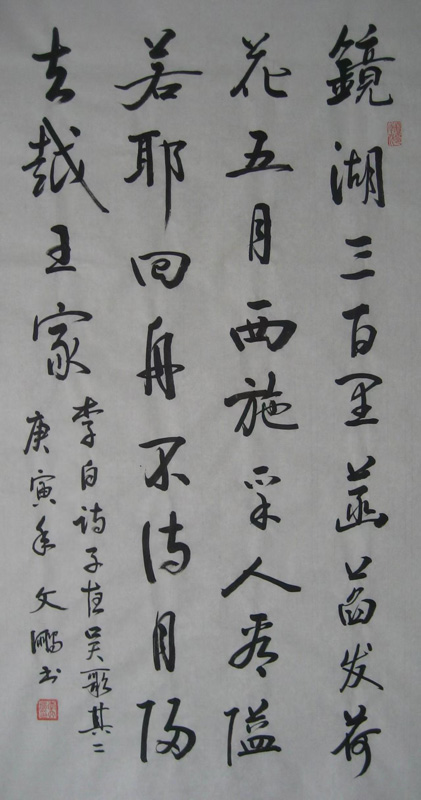 鏡湖三百里菡萏发荷
花五月西施采人看隘
若耶回舟不待月歸
去越王家
李白詩子夜吴歌其二
庚寅年文鵬书